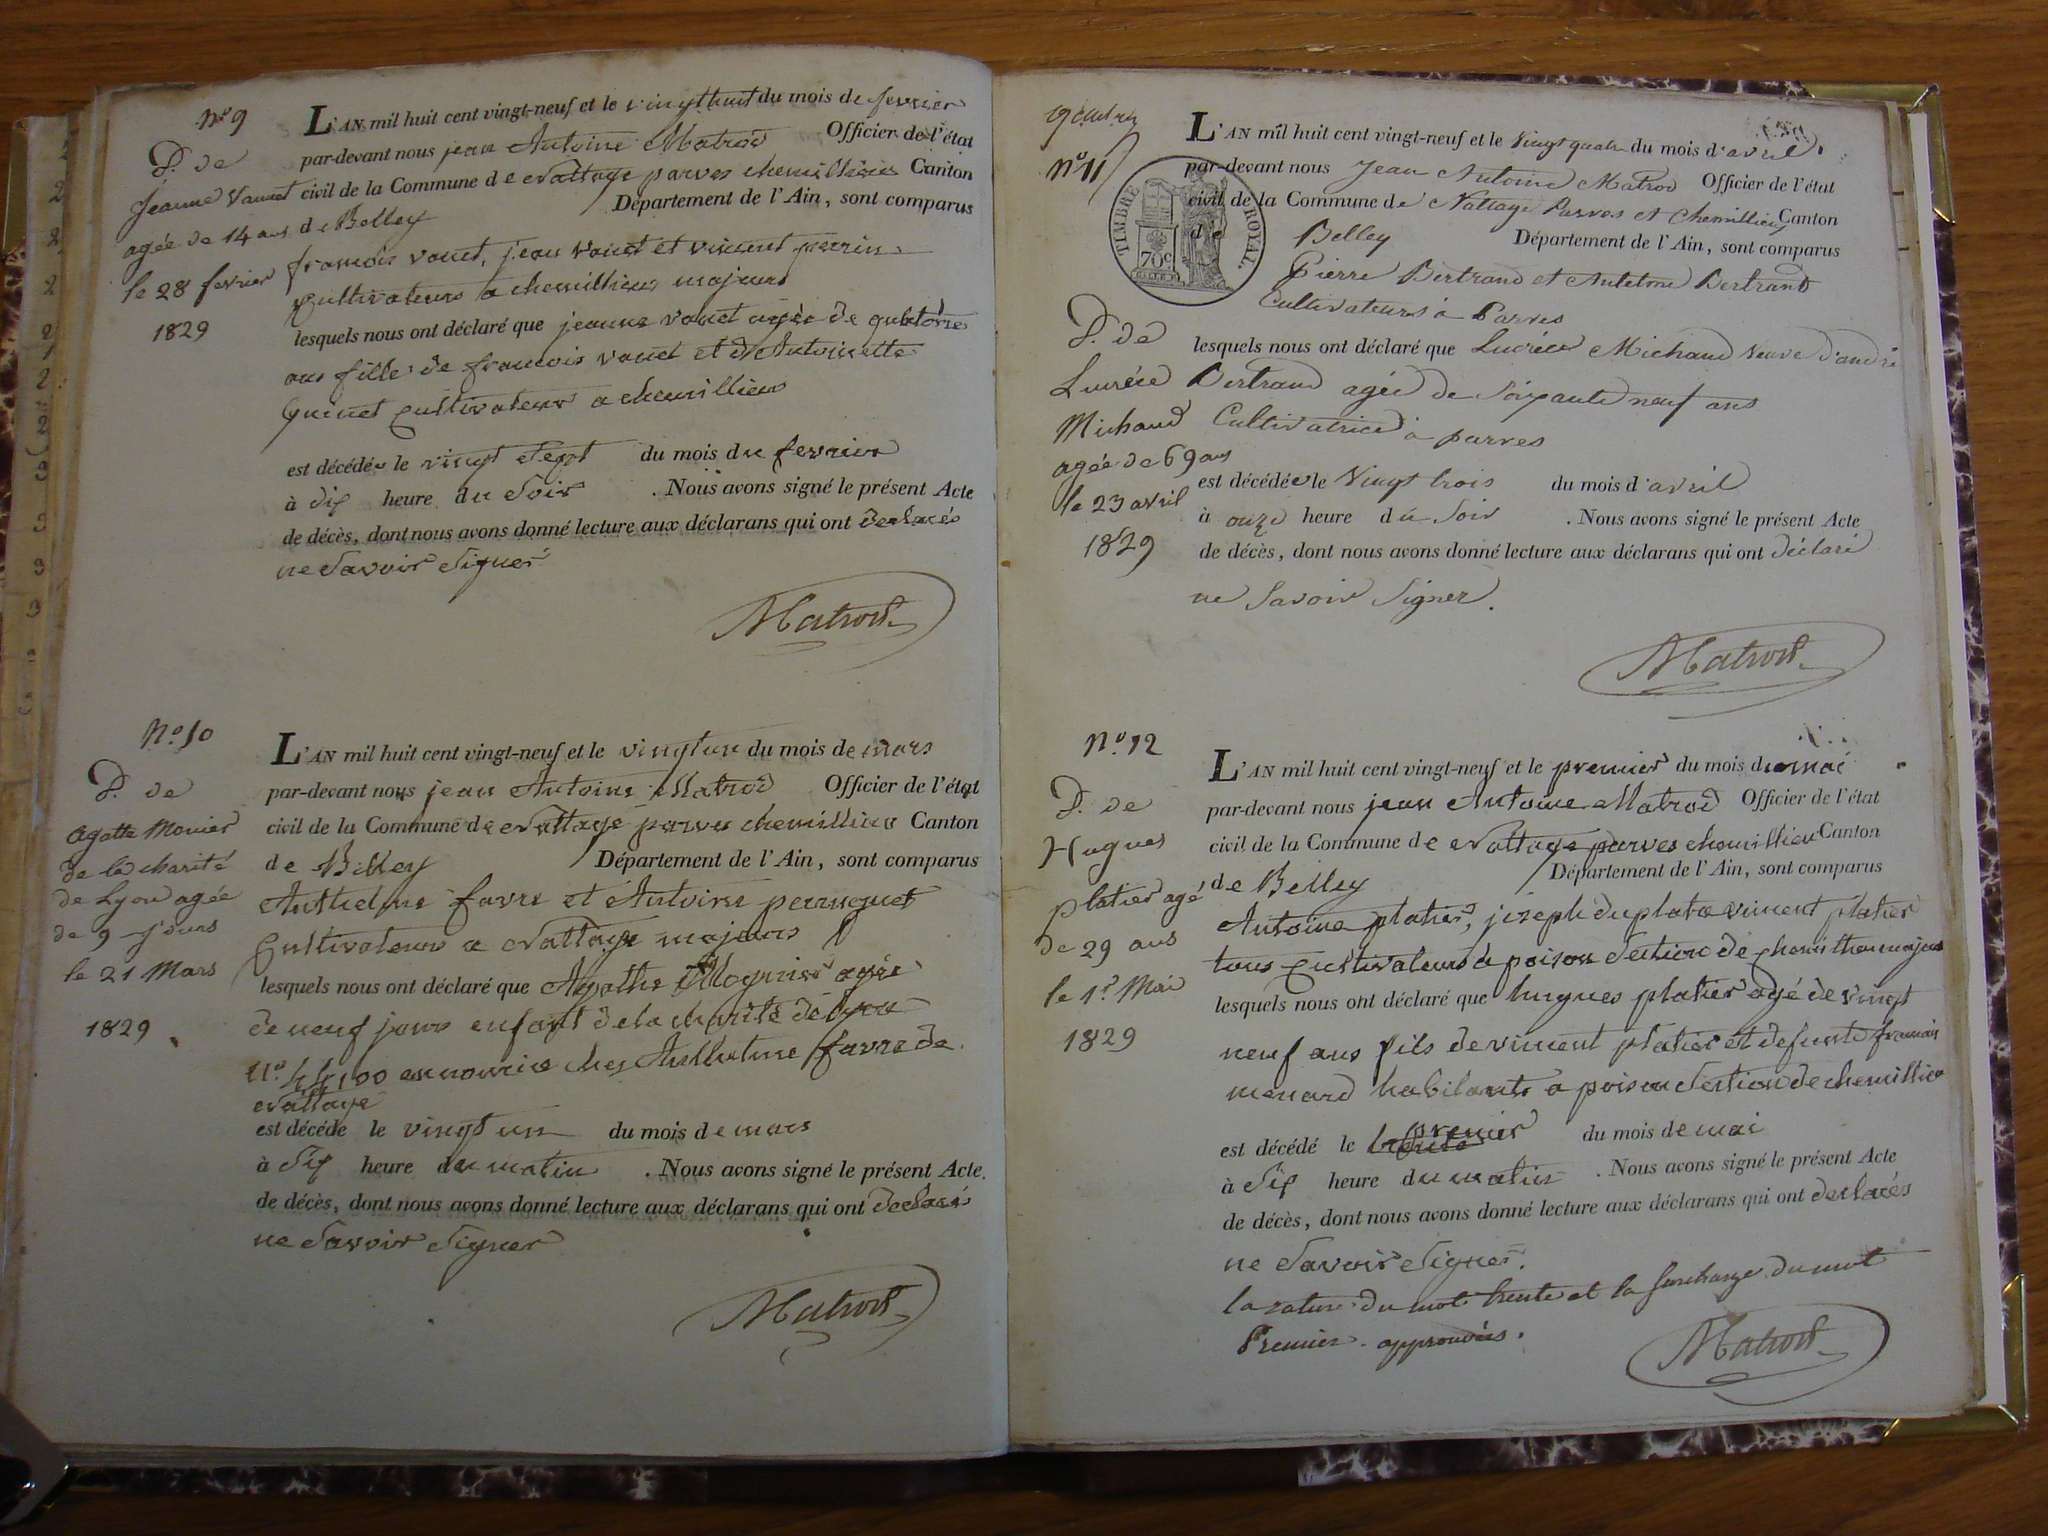 N.º 9
D. de
Jeanne Vaunet
agée de 14 ans
le 28 fevrier
1829
L'AN mil huit cent vingt-neuf et le vingt huit du mois de fevrier
par-devant nous jean Antoine Matrod Officier de l'état
civil de la Commune de Nattage parves chemillieu Canton
de Belley Département de l'Ain, sont comparus
francois vouet, jean vouet et vincent perrin
Cultivateurs a chemillieu majeurs
lesquels nous ont déclaré que jeanne vouet agée de quatorse
ans fille de francois vouet et d'Antoinette
Quinet Cultivateurs a chemillieu
est décédée le vingt sept du mois de fevrier
à dix heure du Soir . Nous avons signé le présent Acte
de décès, dont nous avons donné lecture aux déclarans qui ont declarés
ne Savoir Signer
Matrod
N.º 10
D. de
agatte Monier
de la charité
de Lyon agée
de 9 jours
le 21 Mars
1829
L'AN mil huit cent vingt-neuf et le vingt un du mois de mars
par-devant nous jean Antoine Matrod Officier de l'état
civil de la Commune de Nattage parves chemillieu Canton
de Belley Département de l'Ain, sont comparus
Anthelme favre et Antoine perruquet
Cultivateurs a Nattage majeurs
lesquels nous ont déclaré que Agathe agée
de neuf jours enfant de la charité de Lyon
n.º en nourrice chez Anthelme favre de
Nattage
est décédé le vingt un du mois de mars
à dix heure du matin . Nous avons signé le présent Acte.
de décès, dont nous avons donné lecture aux déclarans qui ont declarés
ne Savoir Signer
Matrod
N.º 11
TIMBRE ROYAL.
70c
D. de
Lucrèce
Michaud
agée de 69 ans
le 23 avril
1829
L'AN mil huit cent vingt-neuf et le Vingt quatre du mois d'avril
par-devant nous Jean Antoine Matrod Officier de l'état
civil de la Commune de Nattage Parves et Chemillieu Canton
de Belley Département de l'Ain, sont comparus
Pierre Bertrand et Antelme Bertrand
Cultivateurs à Parves
lesquels nous ont déclaré que Lucrèce Michaud veuve d'andré
Bertrand agée de Soixante neuf ans
Cultivatrice à parves
est décédée le Vingt trois du mois d'avril
à onze heure du Soir . Nous avons signé le présent Acte
de décès, dont nous avons donné lecture aux déclarans qui ont déclaré
ne Savoir Signer.
Matrod
N.º 12
D. de
Hugues
platier agé
de 29 ans
le 1.r Mai
1829
L'AN mil huit cent vingt-neuf et le premier du mois de mai
par-devant nous jean Antoine Matrod Officier de l'état
civil de la Commune de Nattage parves chemillieu Canton
de Belley Département de l'Ain, sont comparus
Antoine platier, joseph vincent platier
tous Cultivateurs a poisou Section de majeurs
lesquels nous ont déclaré que hugues platier agé de vingt
neuf ans fils de vincent platier et defunte
menard habitants a poisou Section de chemillieu
est décédé le trente premier du mois de mai
à dix heure du matin . Nous avons signé le présent Acte
de décès, dont nous avons donné lecture aux déclarans qui ont declarés
ne Savoir Signer.
la rature du mot trente et la surcharge du mot
Premier approuvées.
Matrod